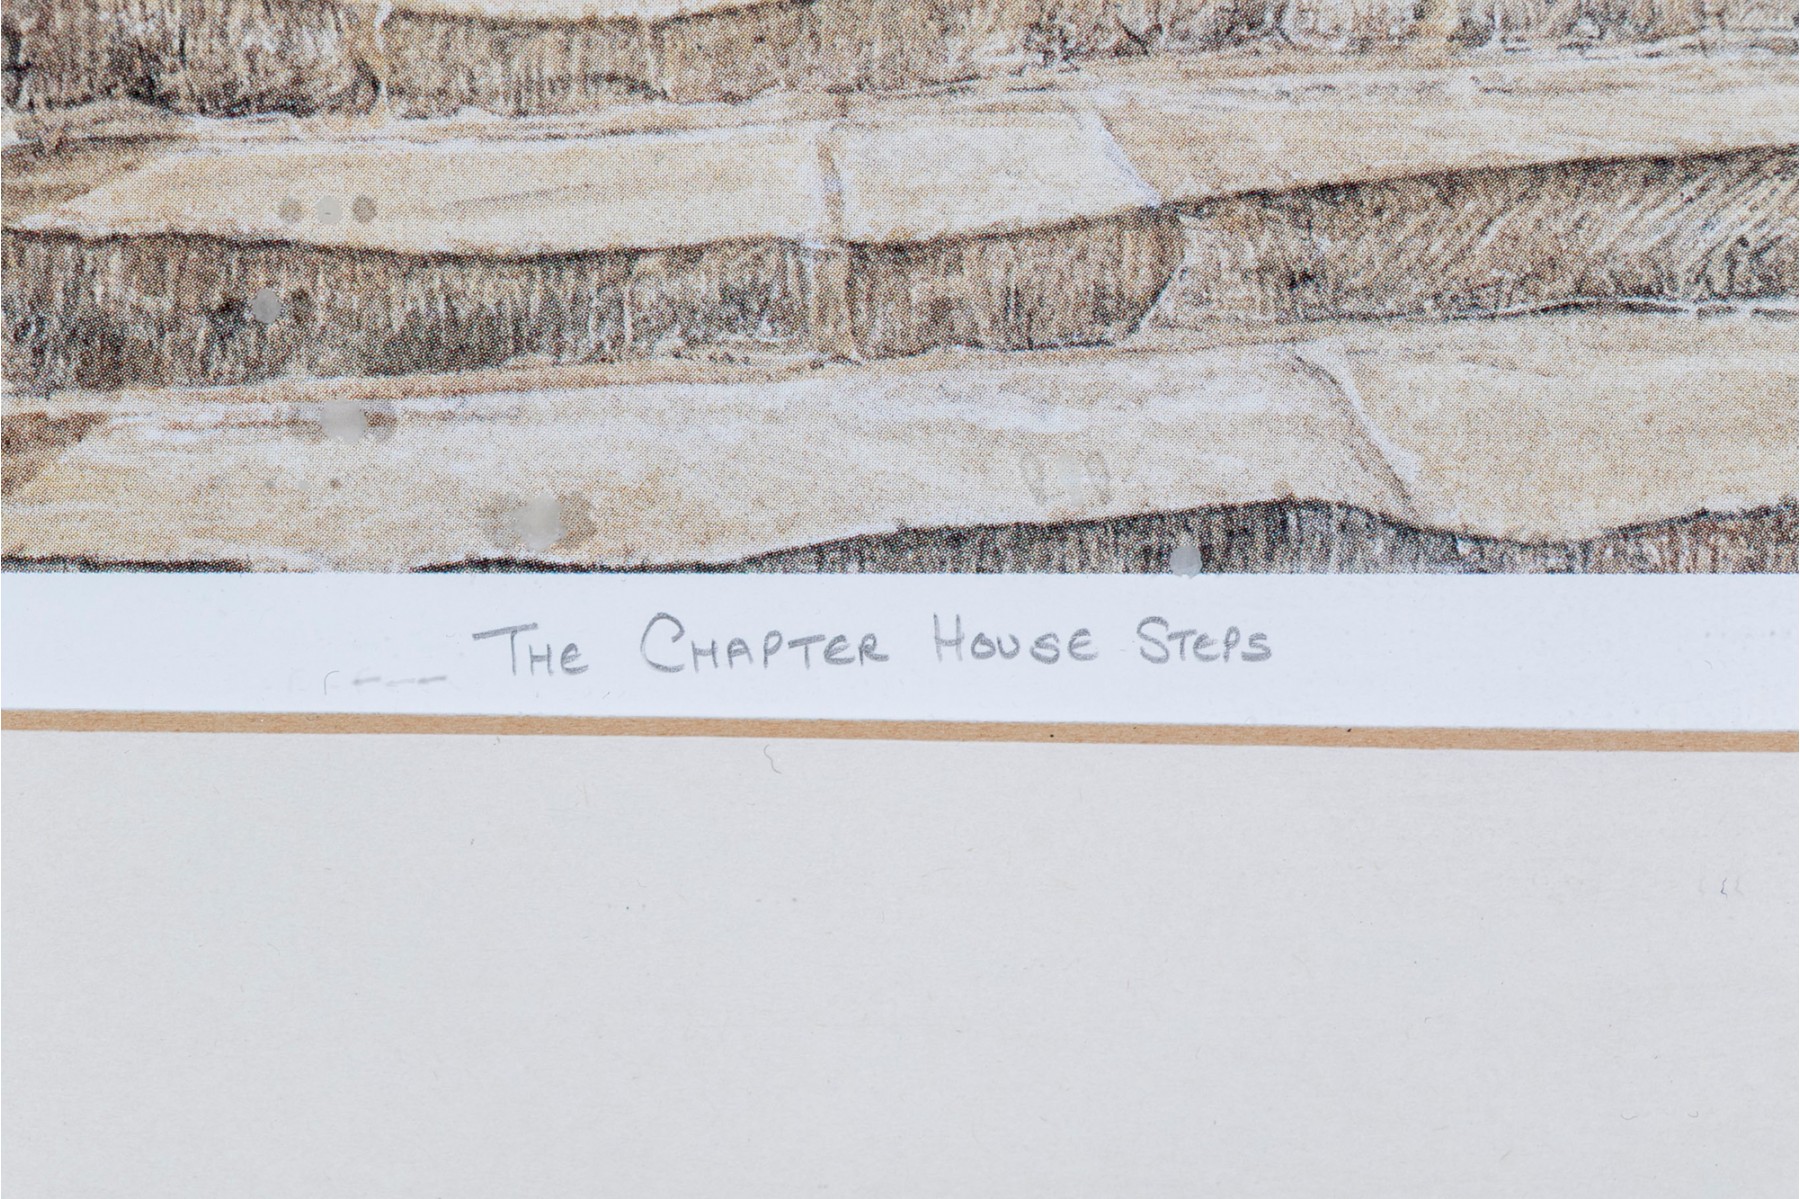 The Chapter House Steps